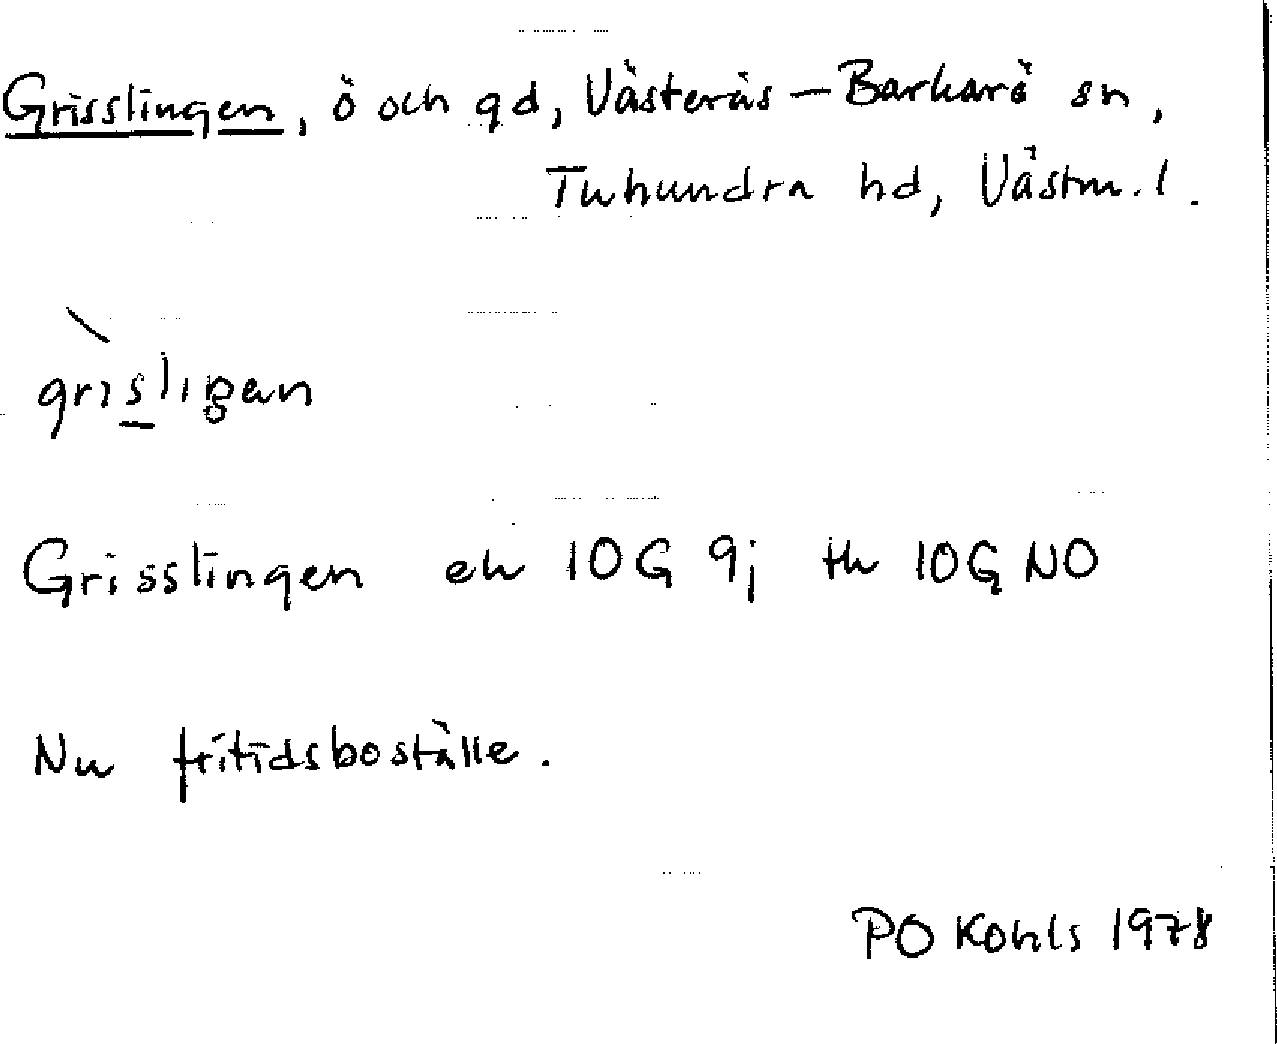 Grisslingen, ö och gd, Västerås-Barkarö sn,
Tuhundra hd, Västm.l.
grisligan
Grisslingen ek 10G 9j tk 10G NO
Nu fritidsboställe.
PO Kohls 1978